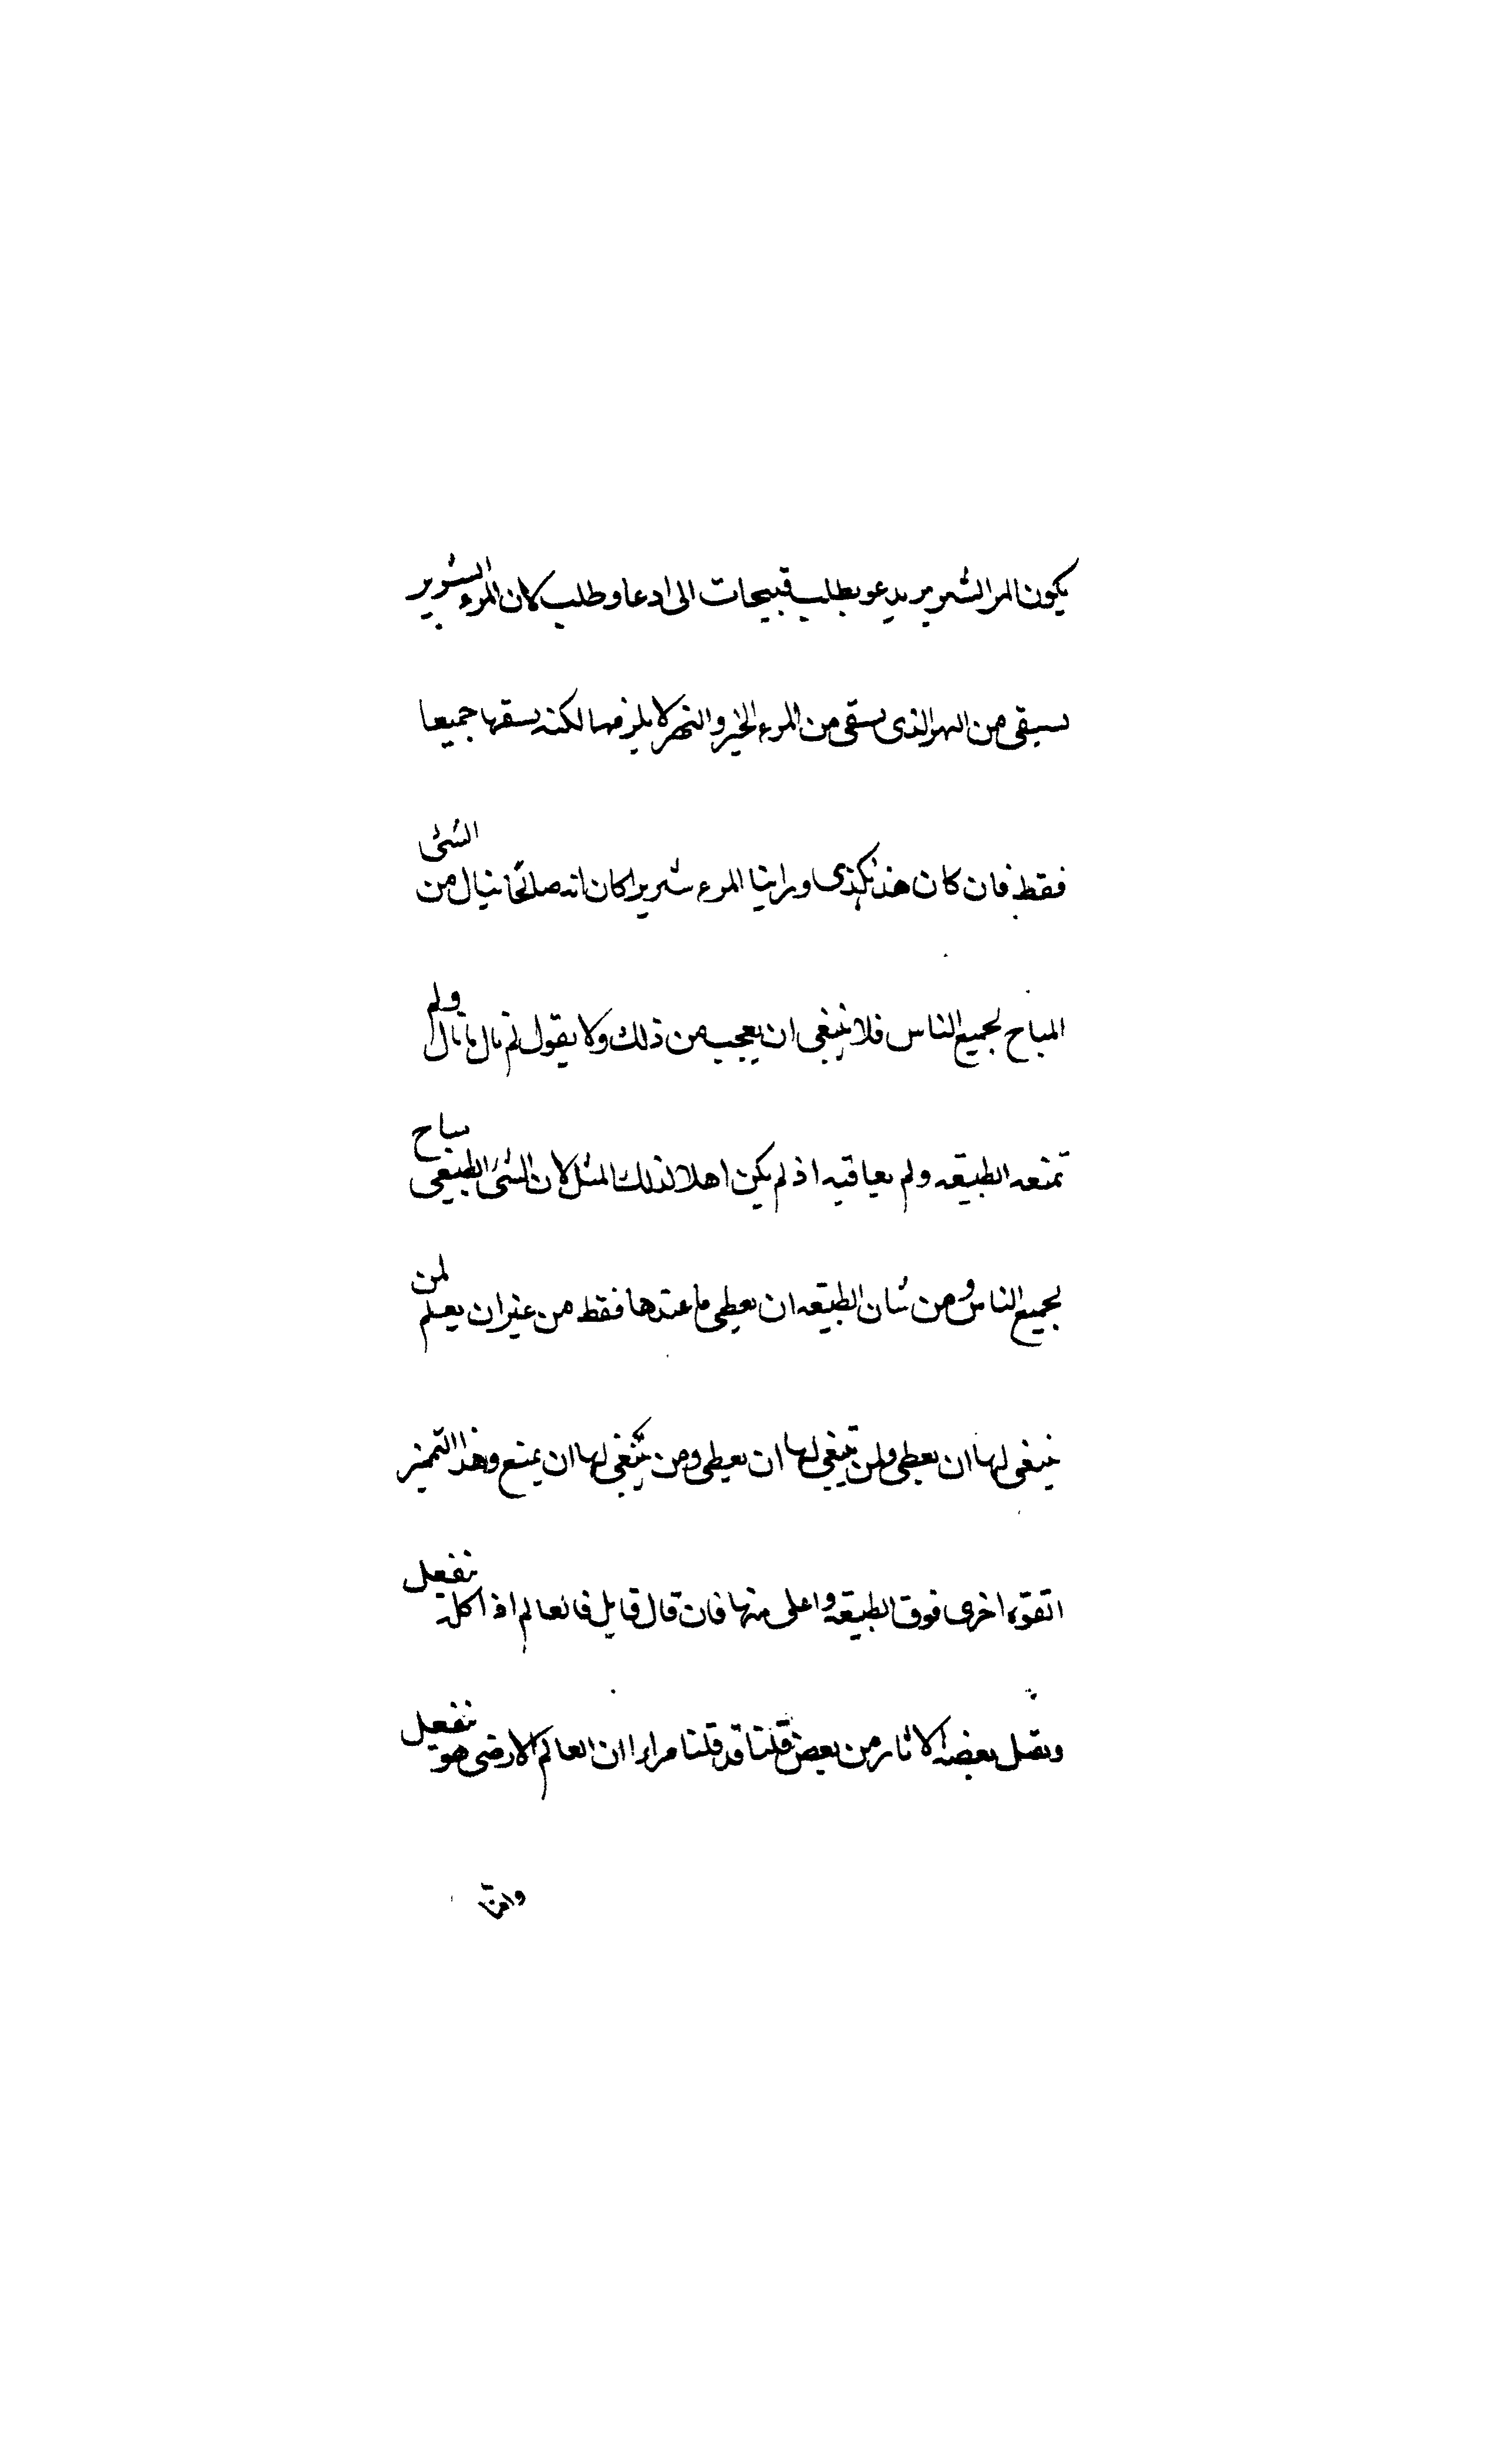 يكون المر الشرير يدعو يطلب قبيحات الى ادعا وطلب لان المرء الشرير
يسيقى من النهر الذى يسقى من المرء الخير والنهر لا يلز مها لكنه يسقها جميعا
فقط فان كان هذا هكذى وراينا المرء شريرا كان انه صالحا ينال من الشى
المباح لجميع الناس فلا ينبغى ان يعجب من ذلك ولا يقول لم نال ما نال ولم
تمنعه الطبيعه ولم يعاقبه اذ لم يكن اهلا لذلك المثل لان الشى الطبيعى مباح
لجميع الناس ومن شان الطبيعه ان يعطى ما عندها فقط من غير ان يعلم لمن
ينبغى لها ان يعطى ولمن ينبغى لها ان يعطى ومن ينبغى لها ان يمنع وهذا التميز
لقوة اخرى فوق الطبيعه واعلى منها فان قال قايل فالعالم اذا كله ينفعل
ويقبل بعضه الاثار من بعض قلنا قد قلنا مرارا ان العالم الارضى هو ينفعل
واما